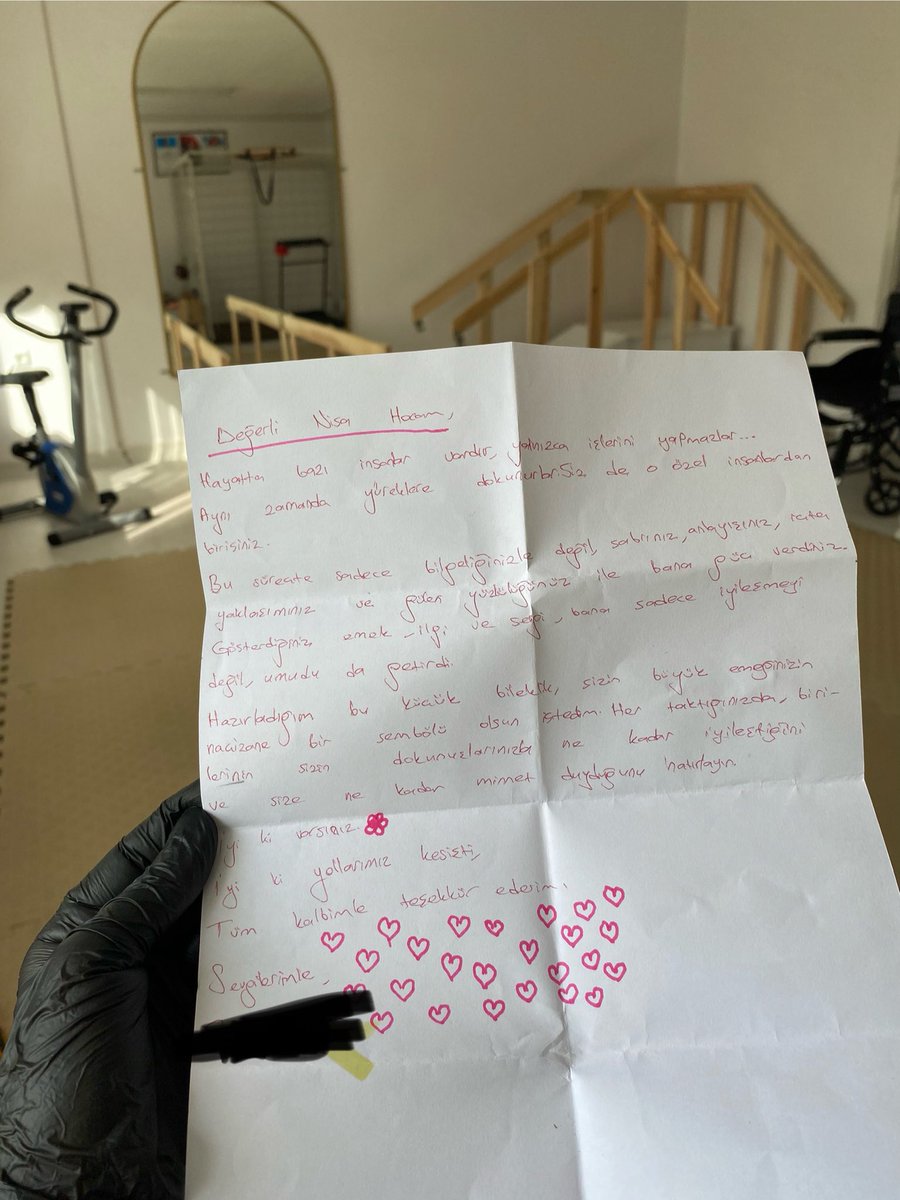 Değerli Nisa Hocam,
Hayatta bazı insanlar vardır, yalnızca işlerini yapmazlar...
Aynı zamanda yüreklere dokunurlar. Siz de o özel insanlardan
birisiniz.
Bu süreçte sadece bilgeliğinizle değil, sabrınız, anlayışınız,
yaklaşımınız ve güler yüzlülüğünüz ile bana güç verdiniz.
Gösterdiğiniz emek, ilgi ve sevgi, bana sadece iyileşmeyi
değil, umudu da getirdi.
Hazırladığım bu küçük bileklik, sizin büyük emeğinizin
nacizane bir sembolü olsun istedim. Her taktığınızda, biri-
lerinin sizin dokunuşlarınızla ne kadar iyileştiğini
ve size ne kadar minnet duyduğunu hatırlayın.
İyi ki varsınız.
İyi ki yollarımız kesişti,
Tüm kalbimle teşekkür ederim.
Sevgilerimle,